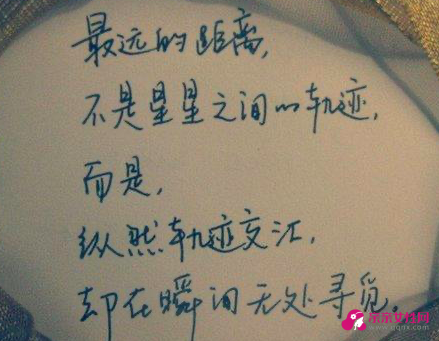 最远的距离,
不是星星之间的轨迹,
而是,
纵然轨迹交汇,
却在瞬间无处寻觅.